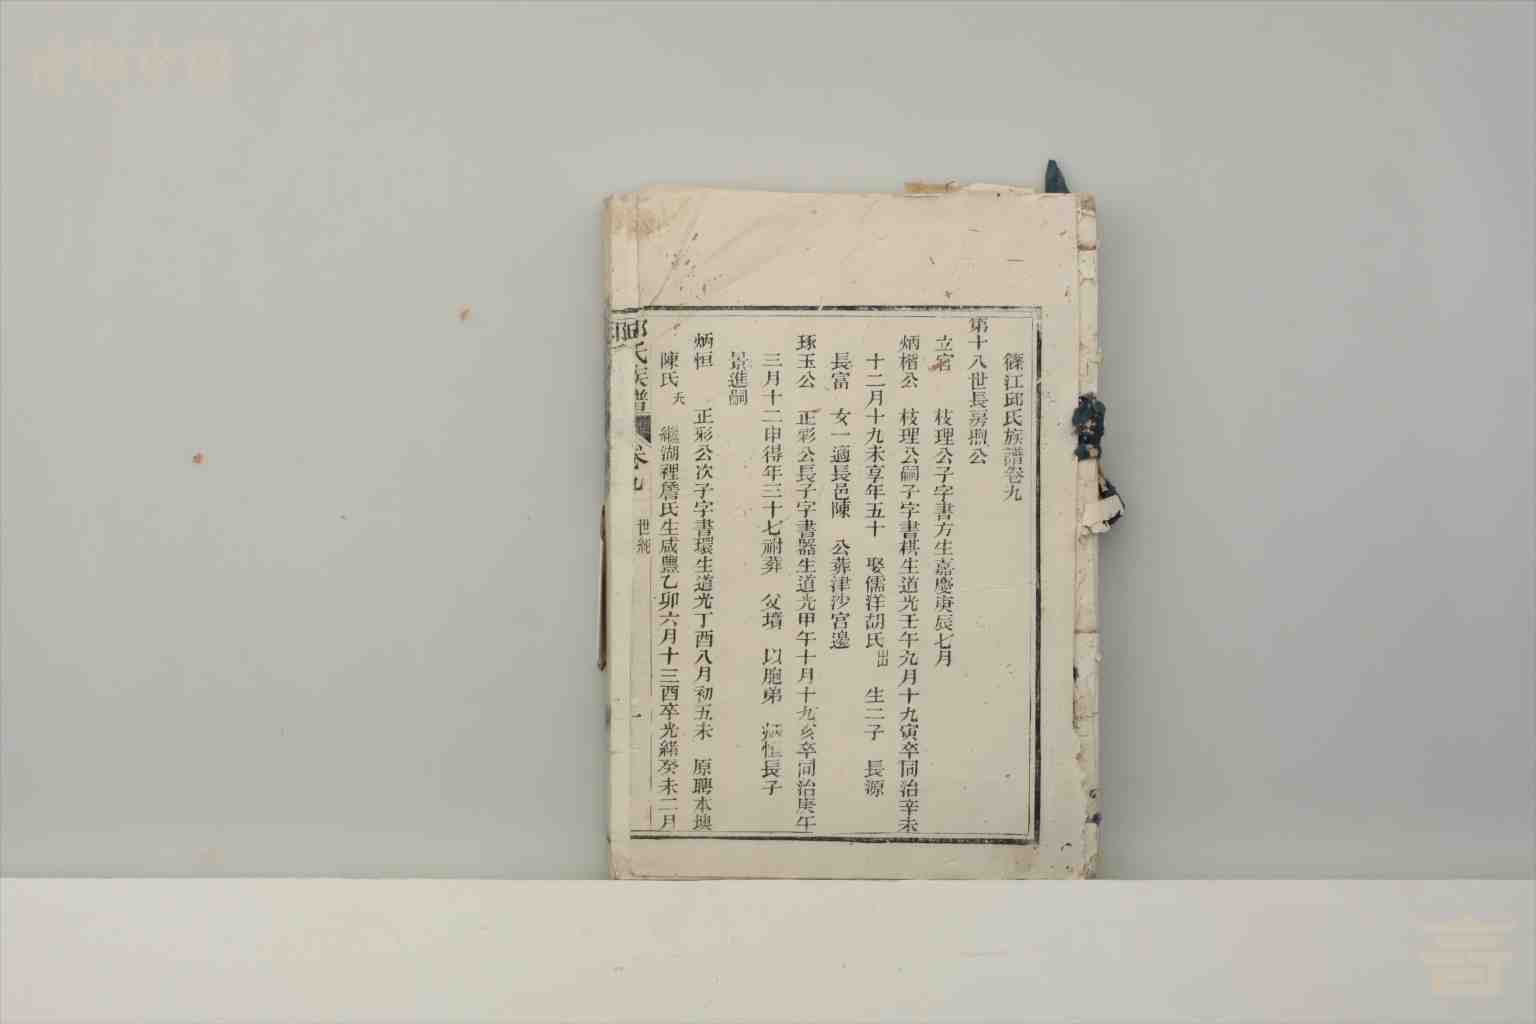 篠江邱氏族譜卷九
第十八世長房㷍公
立宻 枝理公子字書方生嘉慶庚辰七月
炳楷公 枝理公嗣子字書棋生道光壬午九月十九寅卒同治辛未
十二月十九未享年五十 娶儒洋胡氏出 生二子 長源
長富 女一適長邑陳 公葬津沙宮邊
琢玉公 正彩公長子字書器生道光甲午十月十九亥卒同治庚午
三月十二申得年三十七祔葬 父墳 以胞弟 炳恒長子
景進嗣
炳恒 正彩公次子字書環生道光丁酉八月初五未 原聘本墺
陳氏夭 繼湖裡詹氏生咸豐乙卯六月十三酉卒光緒癸未二月
邱氏族譜 卷九 世紀 一